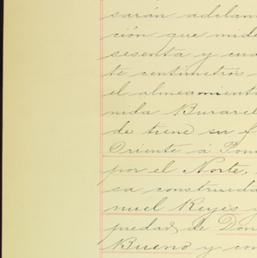 sarán adelan
ción que mide
sesenta y cua
te centímetros
el alineamient
nida
de tiene su f
Oriente a Pon
por el Norte,
sa construida
nuel Reyes y
piedad de Don
Bueno y con